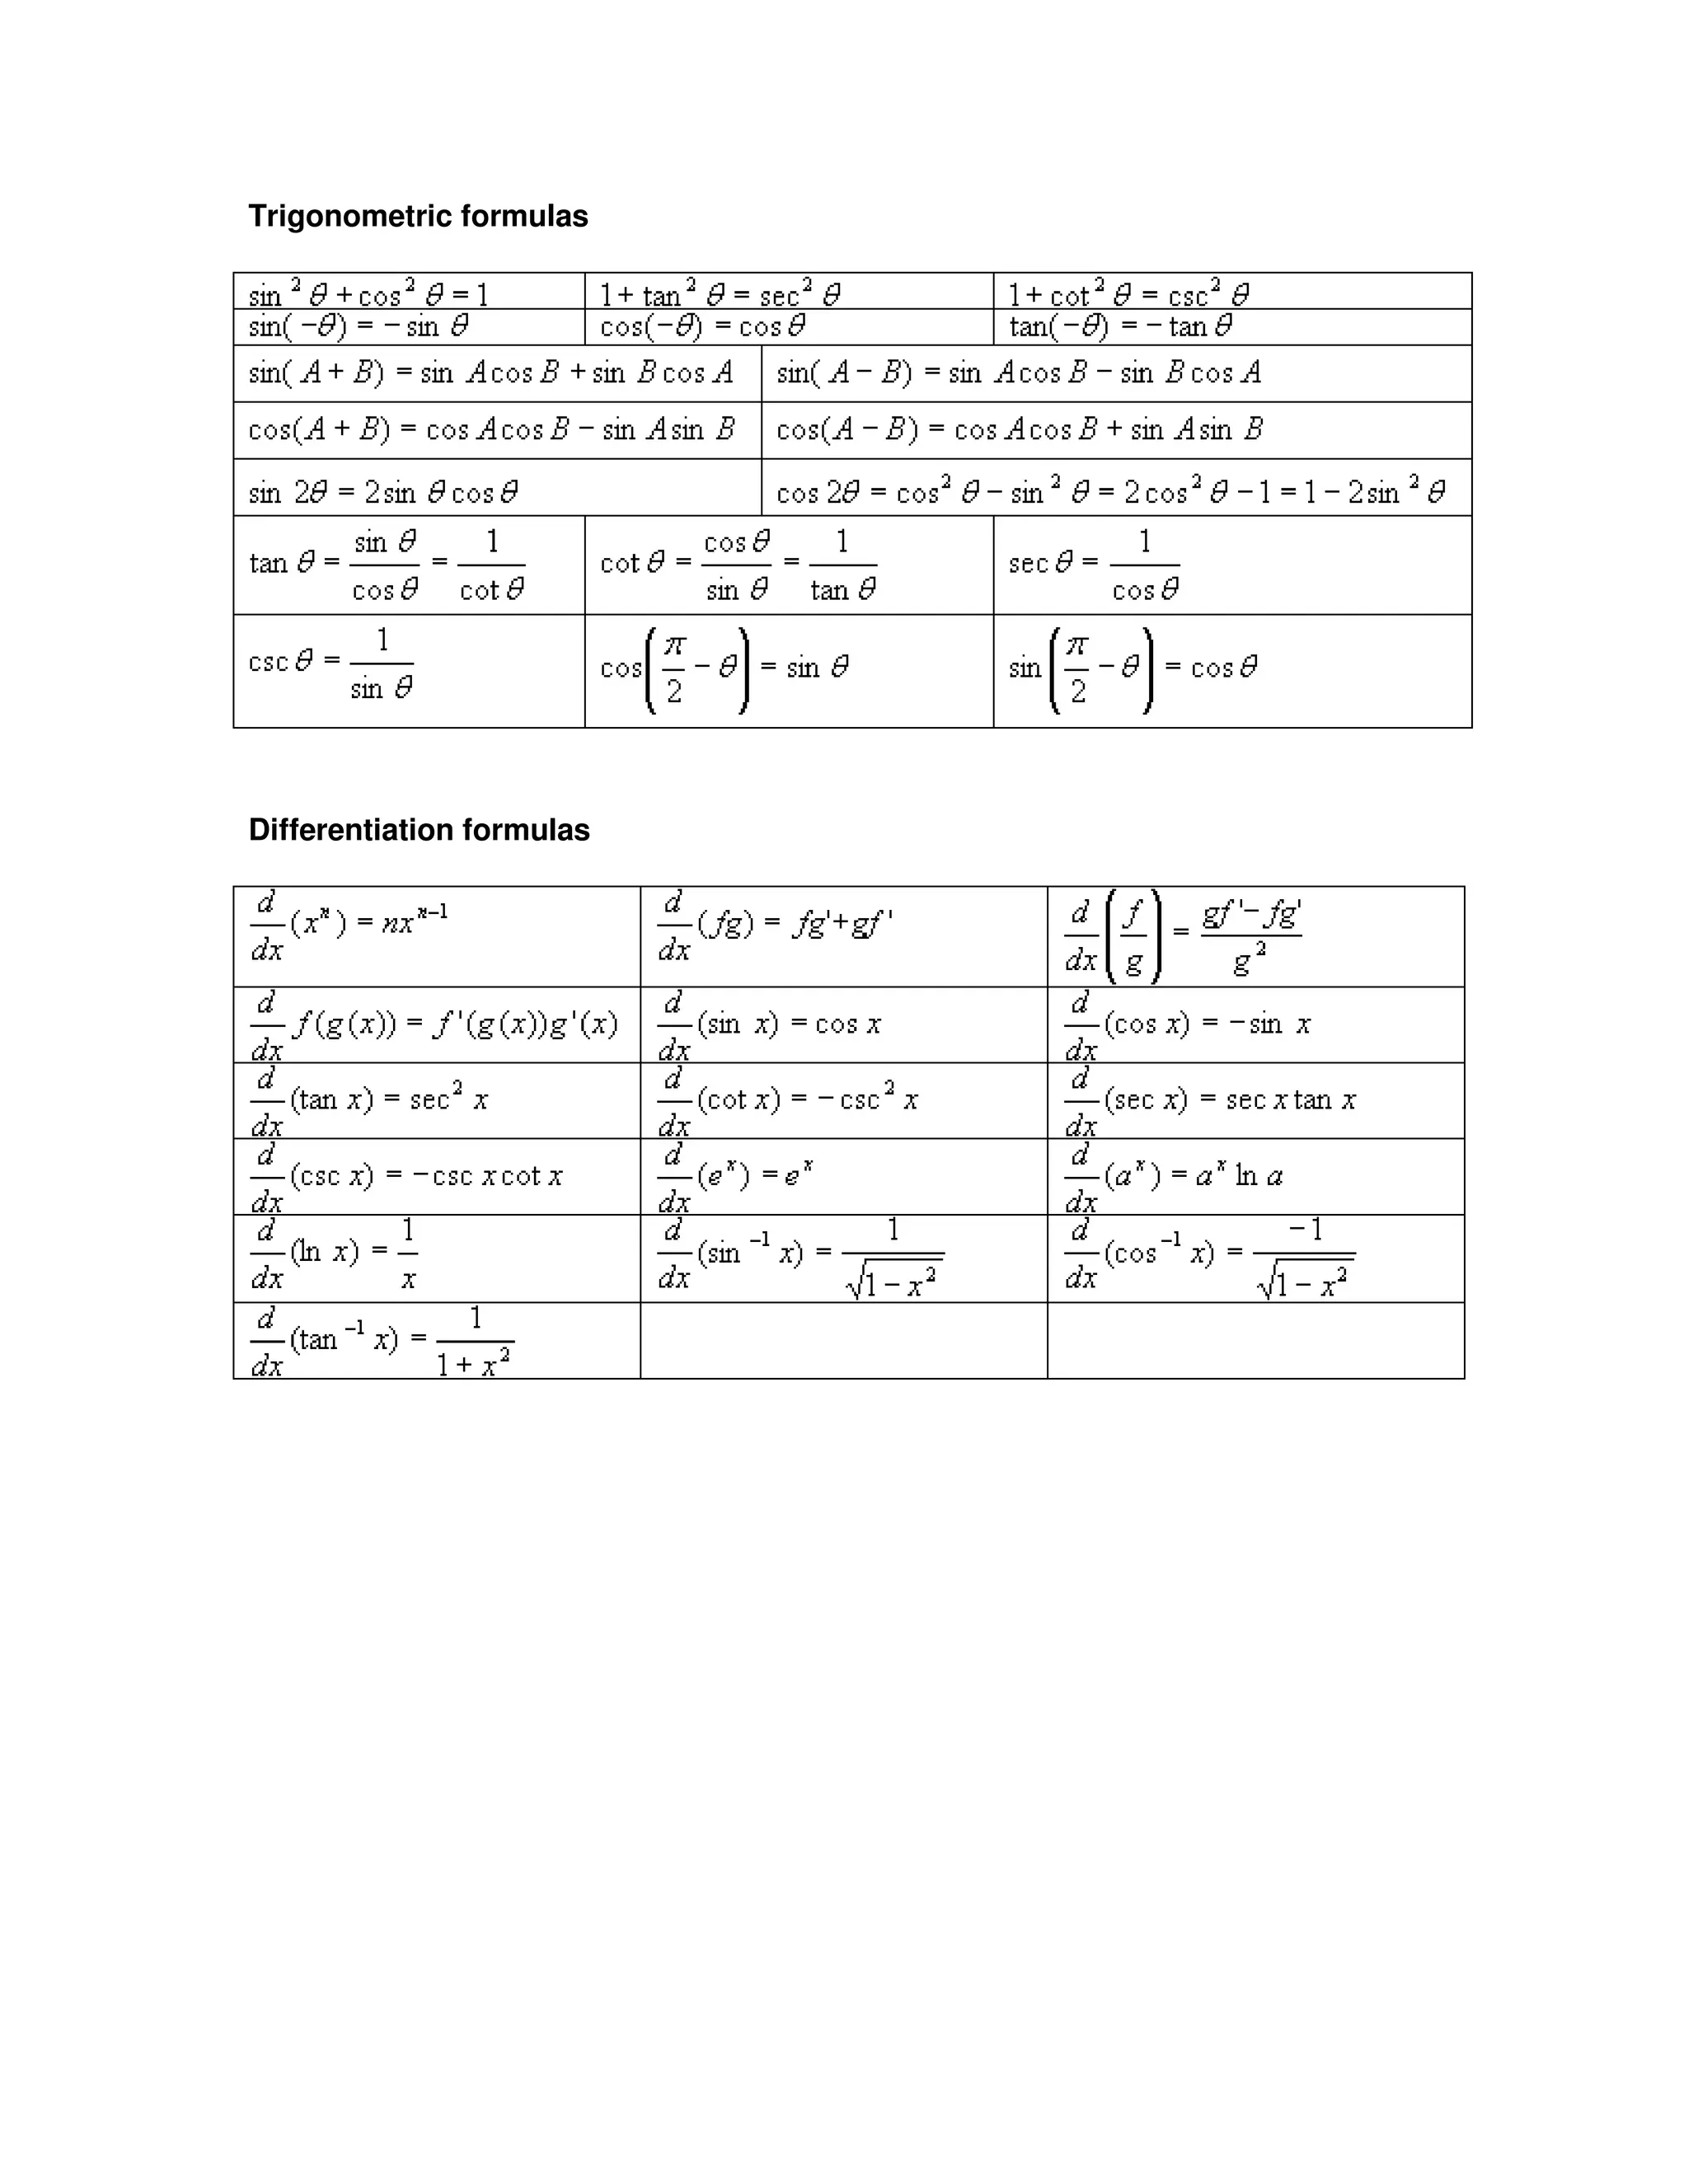 Trigonometric formulas
sin² θ + cos² θ = 1 1 + tan² θ = sec² θ 1 + cot² θ = csc² θ
sin(−θ) = −sin θ cos(−θ) = cos θ tan(−θ) = −tan θ
sin(A + B) = sin A cos B + sin B cos A sin(A − B) = sin A cos B − sin B cos A
cos(A + B) = cos A cos B − sin A sin B cos(A − B) = cos A cos B + sin A sin B
sin 2θ = 2 sin θ cos θ cos 2θ = cos² θ − sin² θ = 2 cos² θ − 1 = 1 − 2 sin² θ
tan θ = sin θ / cos θ = 1 / cot θ cot θ = cos θ / sin θ = 1 / tan θ sec θ = 1 / cos θ
csc θ = 1 / sin θ cos(π/2 − θ) = sin θ sin(π/2 − θ) = cos θ
Differentiation formulas
d/dx (xⁿ) = nxⁿ⁻¹ d/dx (fg) = fg'+gf' d/dx (f/g) = (gf'−fg') / g²
d/dx f(g(x)) = f'(g(x))g'(x) d/dx (sin x) = cos x d/dx (cos x) = −sin x
d/dx (tan x) = sec² x d/dx (cot x) = −csc² x d/dx (sec x) = sec x tan x
d/dx (csc x) = −csc x cot x d/dx (eˣ) = eˣ d/dx (aˣ) = aˣ ln a
d/dx (ln x) = 1/x d/dx (sin⁻¹ x) = 1 / √(1 − x²) d/dx (cos⁻¹ x) = −1 / √(1 − x²)
d/dx (tan⁻¹ x) = 1 / (1 + x²)